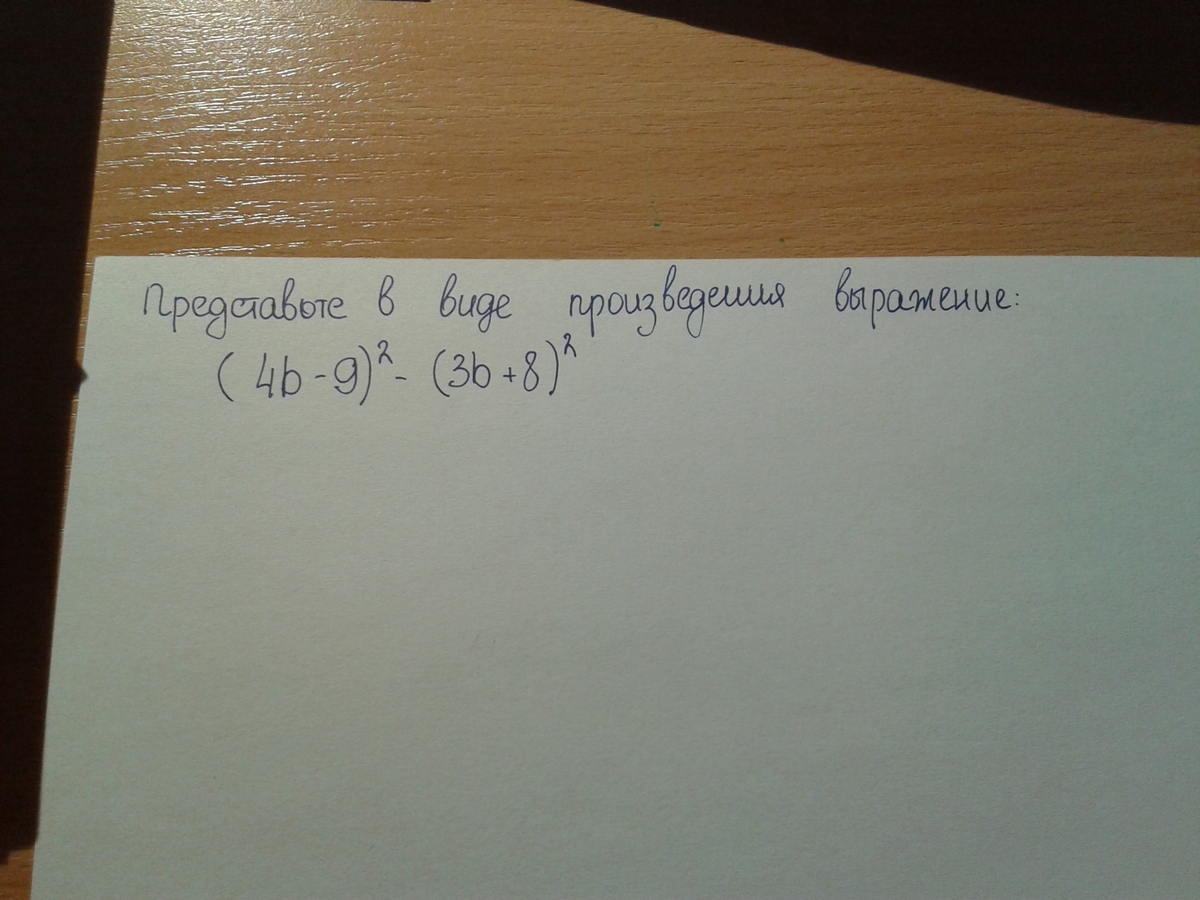 Представьте в виде произведения выражение:
(4b-9)²- (3b+8)²